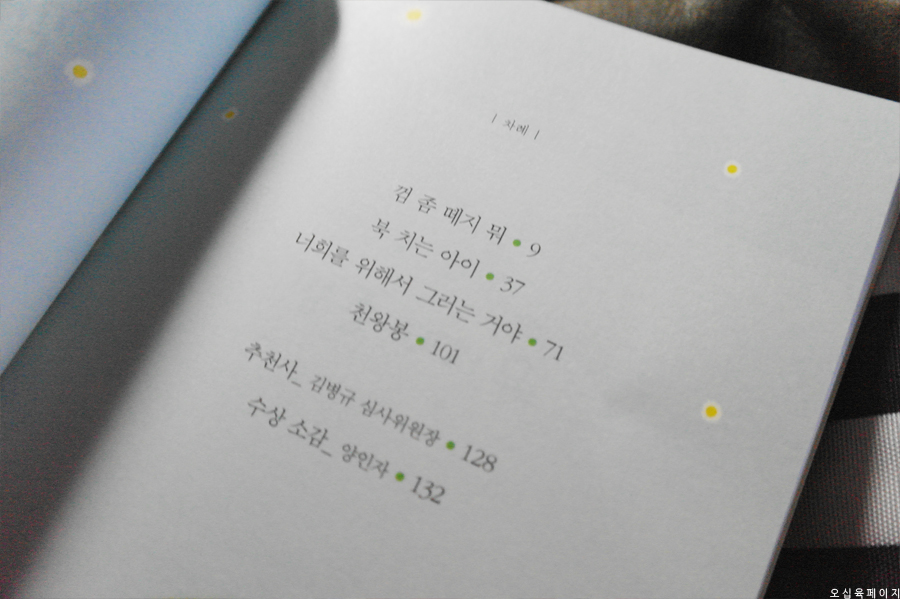 | 차례 |
껌 좀 떼지 뭐 • 9
북 치는 아이 • 37
너희를 위해서 그러는 거야 • 71
천왕봉 • 101
추천사_ 김병규 심사위원장 • 128
수상 소감_ 양인자 • 132
오십육페이지